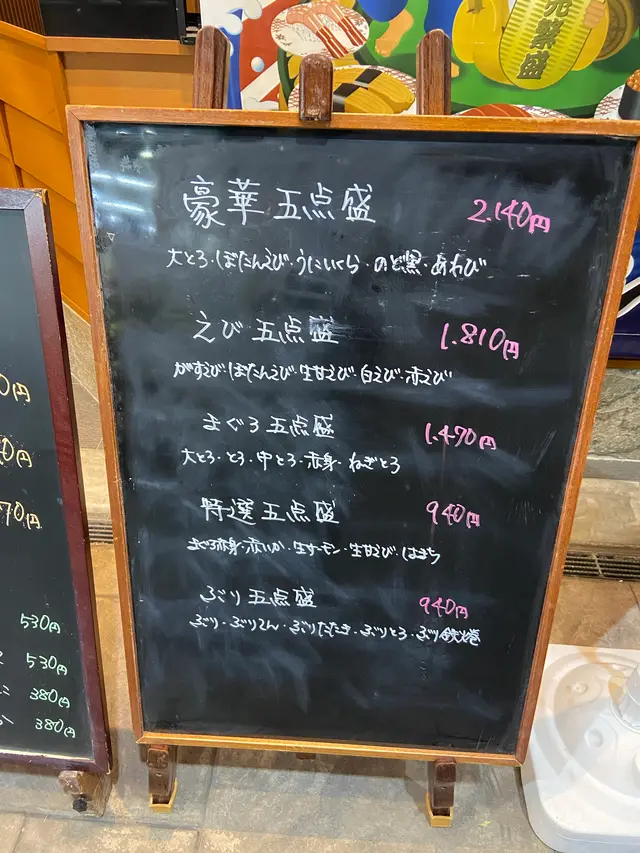 売繁盛
豪華五点盛 2.140円
大とろ・ぼたんえび・うにいくら・のど黒・あわび
えび五点盛 1.810円
がすえび・ぼたんえび・生甘えび・白えび・赤えび
まぐろ五点盛 1.470円
大とろ・とろ・中とろ・赤身・ねぎとろ
特選五点盛 940円
まぐろ赤身・赤いか・生サーモン・生甘えび・はまち
ぶり五点盛 940円
ぶり・ぶりてん・ぶりたたき・ぶりとろ・ぶり鉄火巻
0円
0円
70円
530円
530円
380円
380円